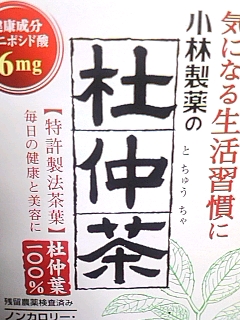 気になる生活習慣に
小林製薬の
杜仲茶
とちゅうちゃ
【特許製法茶葉】
毎日の健康と美容に
杜仲葉
100%
健康成分
ニポシド酸
6mg
残留農薬検査済み
ノンカロリー・